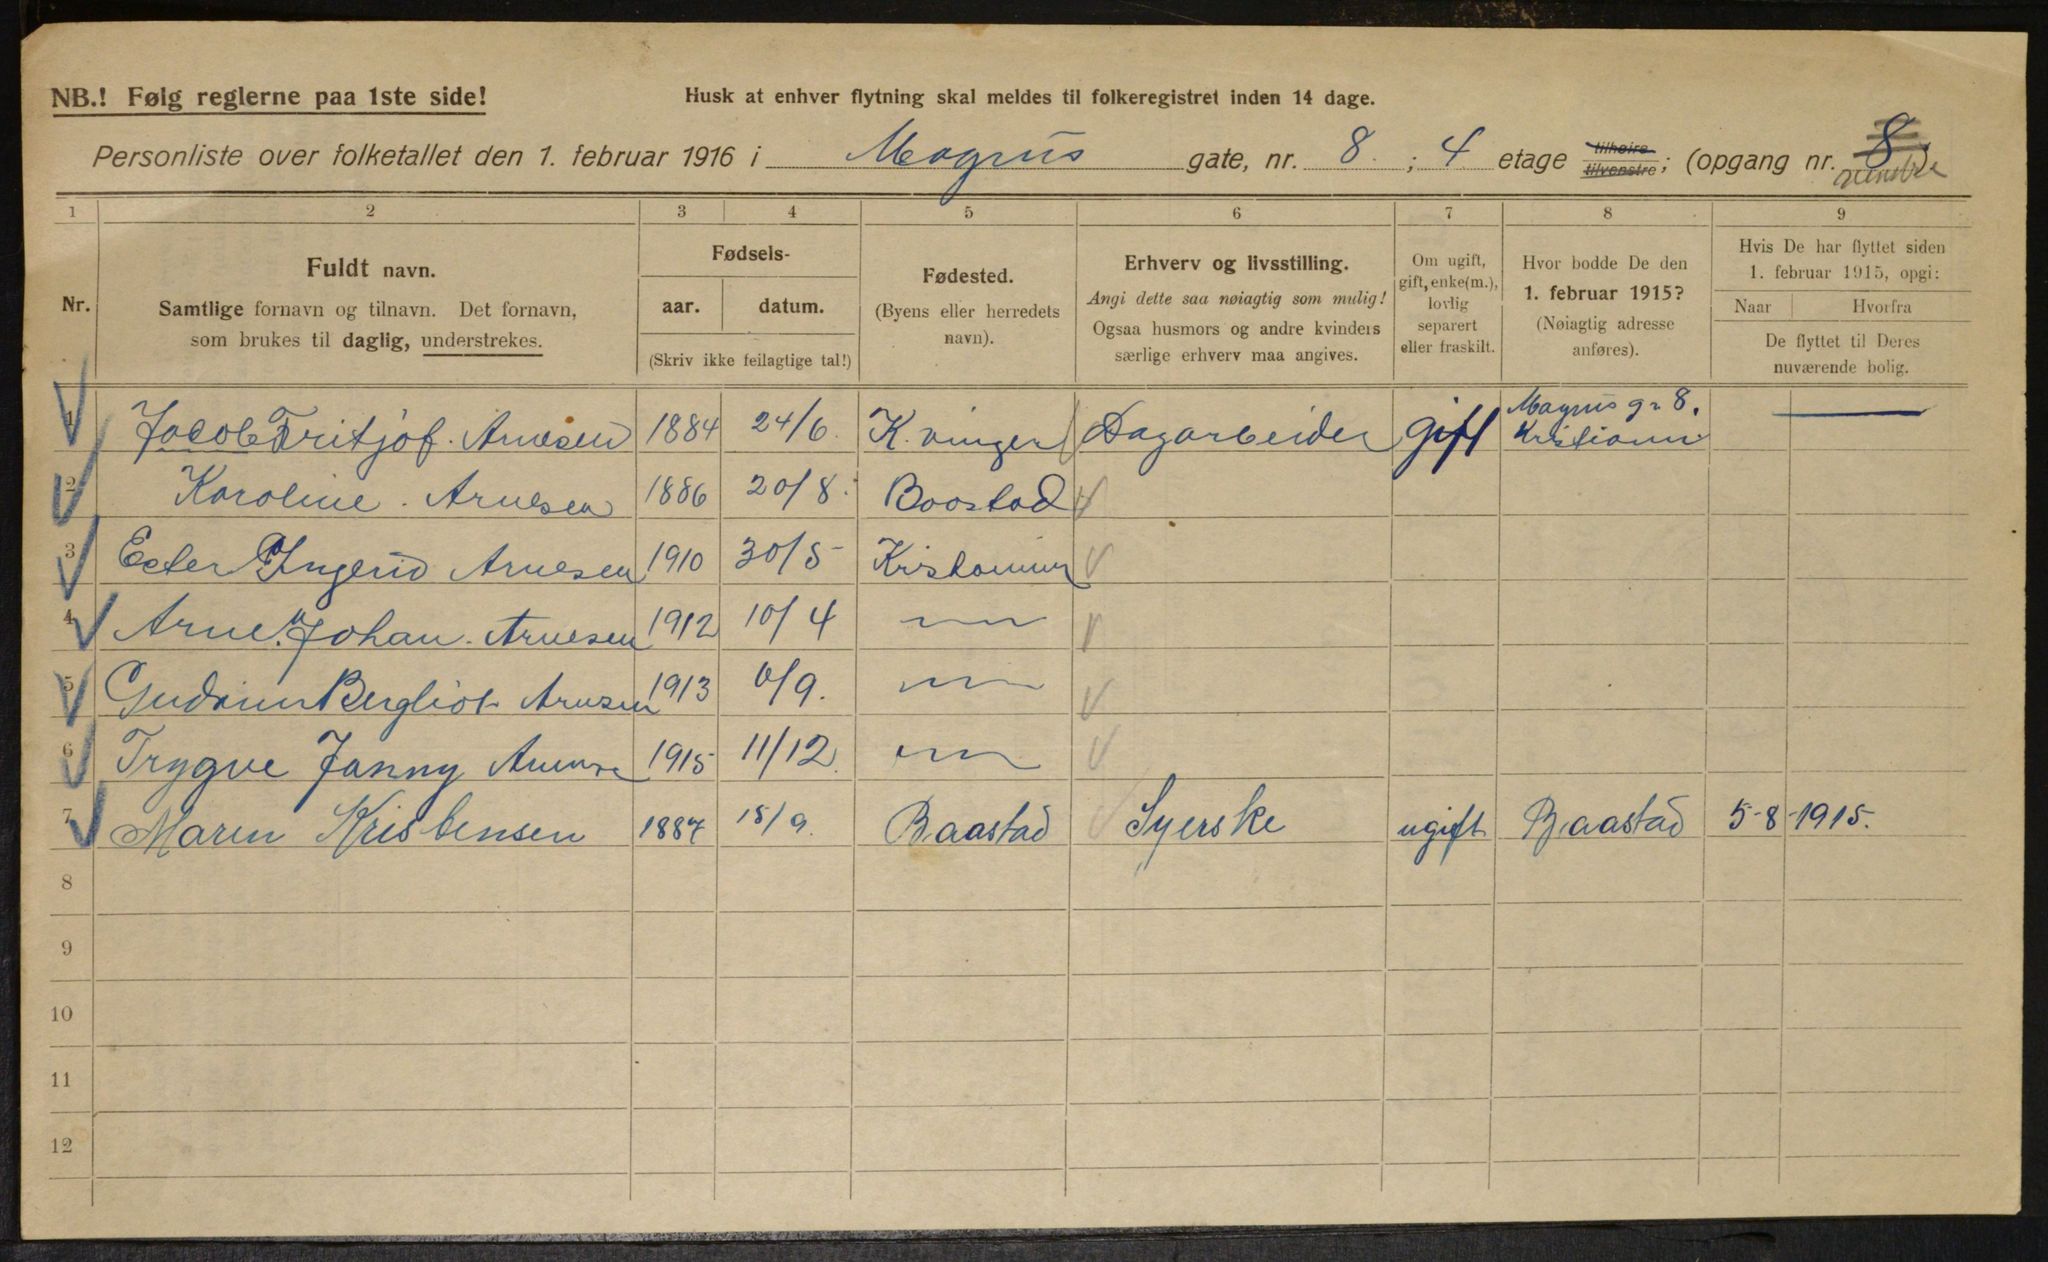 NB.! Følg reglerne paa 1ste side!
Husk at enhver flytning skal meldes til folkeregistret inden 14 dage.
Personliste over folketallet den 1. februar 1916 i Magnus gate, nr. 8. ; 4. etage tilhøire tilvenstre; (opgang nr. 8)
1 2 3 4 5 6 7 8 9
Nr.
Fuldt navn.
Samtlige fornavn og tilnavn. Det fornavn,
som brukes til daglig, understrekes.
Fødsels-
aar. datum.
(Skriv ikke feilagtige tal!)
Fødested.
(Byens eller herredets
navn).
Erhverv og livsstilling.
Angi dette saa nøiagtig som mulig!
Ogsaa husmors og andre kvinders
særlige erhverv maa angives.
Om ugift,
gift, enke(m.),
lovlig
separert
eller fraskilt.
Hvor bodde De den
1. februar 1915?
(Nøiagtig adresse
anføres).
Hvis De har flyttet siden
1. februar 1915, opgi:
Naar Hvorfra
De flyttet til Deres
nuværende bolig.
Magnus g. 8.
1 Jacob Fritjof. Arnesen 1884 24/6. K. vinger Dagarbeider gift Kristiania
2 Karoline. Arnesen 1886 20/8. Boostad
3 Ester Ingerid Arnesen 1910 30/5 Kristiania
4 Arne. Johan. Arnesen 1912 10/4
5 Gudrun Bergliot Arnesen 1913 6/9.
6 Trygve Janny Arnesen 1915 11/12.
7 Maren Kristensen 1887 15/9. Baastad Syerske ugift Baastad 5-8-1915.
8
9
10
11
12